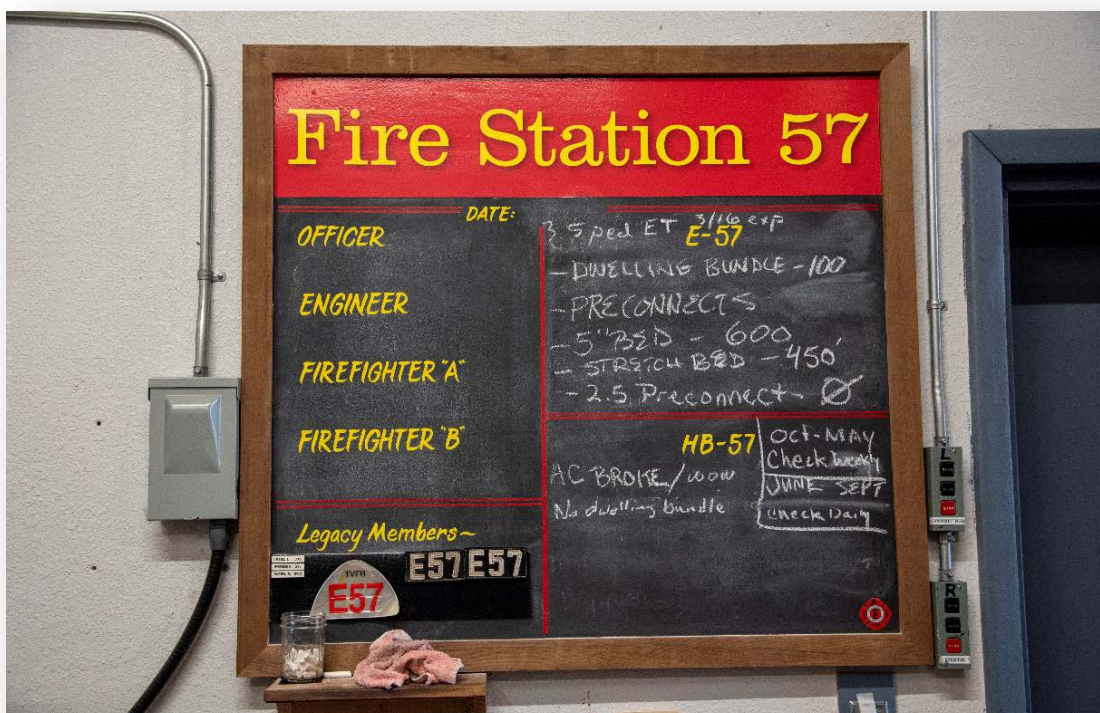 Fire Station 57
DATE:
OFFICER
ENGINEER
FIREFIGHTER "A"
FIREFIGHTER "B"
Legacy Members~
E57 E57
TVFR
E57
5 ped ET 3/16 exp
E-57
- DWELLING BUNDLE - 100
- PRECONNECTS
- 5" BED - 600
- STRETCH BED - 450'
- 2.5 Preconnect - Ø
HB-57
AC BROKE/WOW
No dwelling bundle
OCT-MAY
Check Weekly
JUNE SEPT
Check Daily
L
STOP
R
STOP